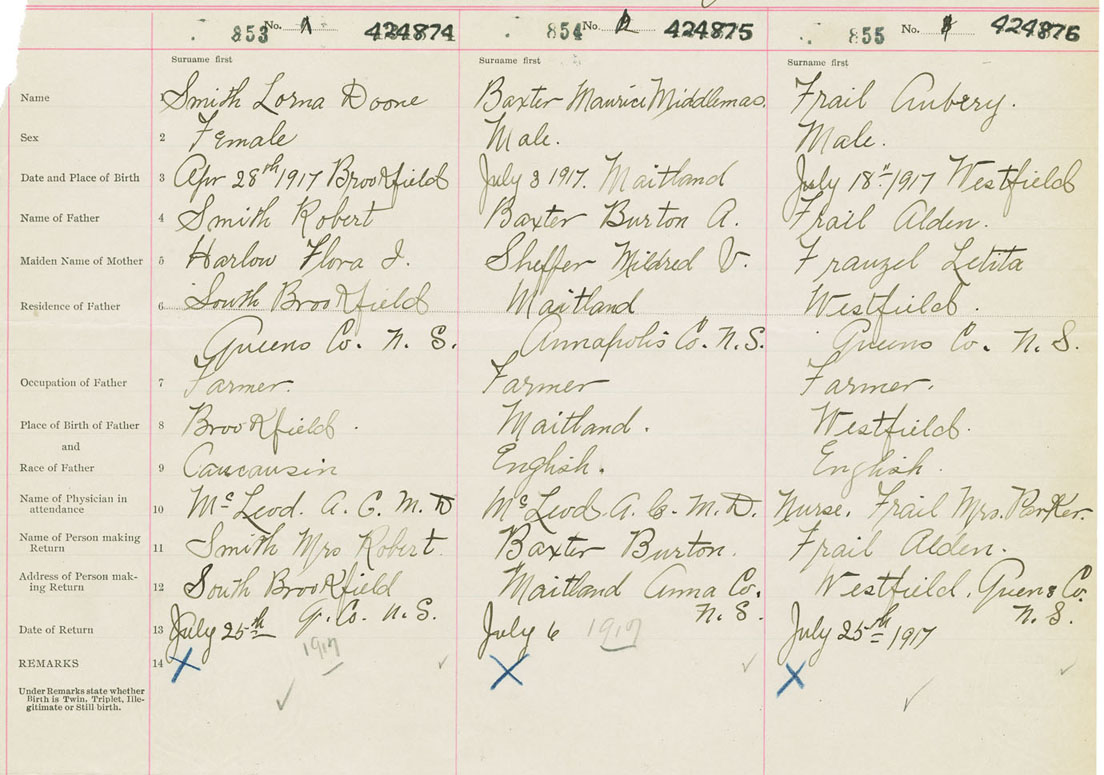 853 No. 1 424874 854 No. 2 424875 855 No. 424876
Surname first Surname first Surname first
Name Smith Lorna Doone Baxter Maurice Middlemas. Frail Aubery.
Sex 2 Female Male. Male.
Date and Place of Birth 3 Apr 28th 1917 Brookfield July 3 1917. Maitland July 18th 1917 Westfield
Name of Father 4 Smith Robert Baxter Burton A. Frail Alden.
Maiden Name of Mother 5 Harlow Flora I. Sheffer Mildred V. Franzel Letita
Residence of Father 6 South Brookfield Maitland Westfield.
Queens Co. N. S. Annapolis Co. N.S. Queens Co. N. S.
Occupation of Father 7 Farmer. Farmer Farmer.
Place of Birth of Father 8 Brookfield. Maitland. Westfield.
and
Race of Father 9 Caucausin English. English.
Name of Physician in attendance 10 McLeod. A. C. M. D McLeod. A. C. M. D. Nurse. Frail Mrs. Parker.
Name of Person making Return 11 Smith Mrs Robert. Baxter Burton. Frail Alden.
Address of Person mak-ing Return 12 South Brookfield Maitland Anna Co. Westfield. Queens Co.
Q. Co. N. S. N. S. N. S.
Date of Return 13 July 25th 1917 July 6 1917 July 25th 1917
REMARKS 14 X X X
Under Remarks state whether
Birth is Twin, Triplet, Ille-
gitimate or Still birth.